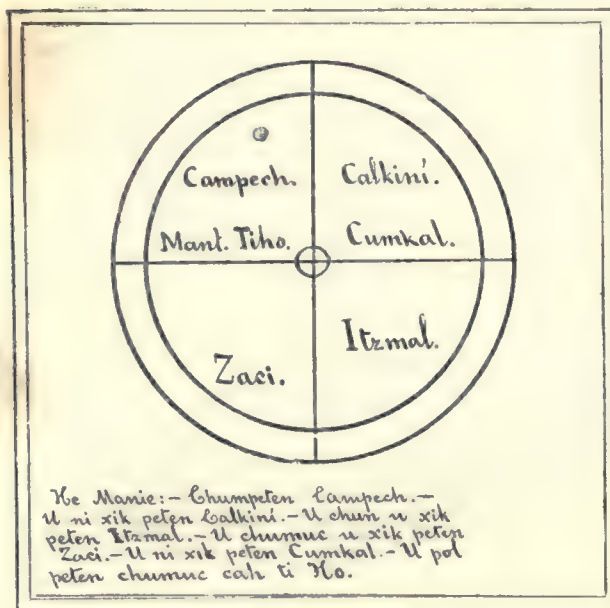 Campech. Calkiní.
Mant. Tiho. Cumkal.
Itzmal.
Zaci.
He Manie:- Chumpeten Campech.-
U ni xik peten Calkiní.- U chun u xik
peten Itzmal.- U chumuc u xik peten
Zaci.- U ni xik peten Cumkal.- U pol
peten chumuc cah ti Ho.